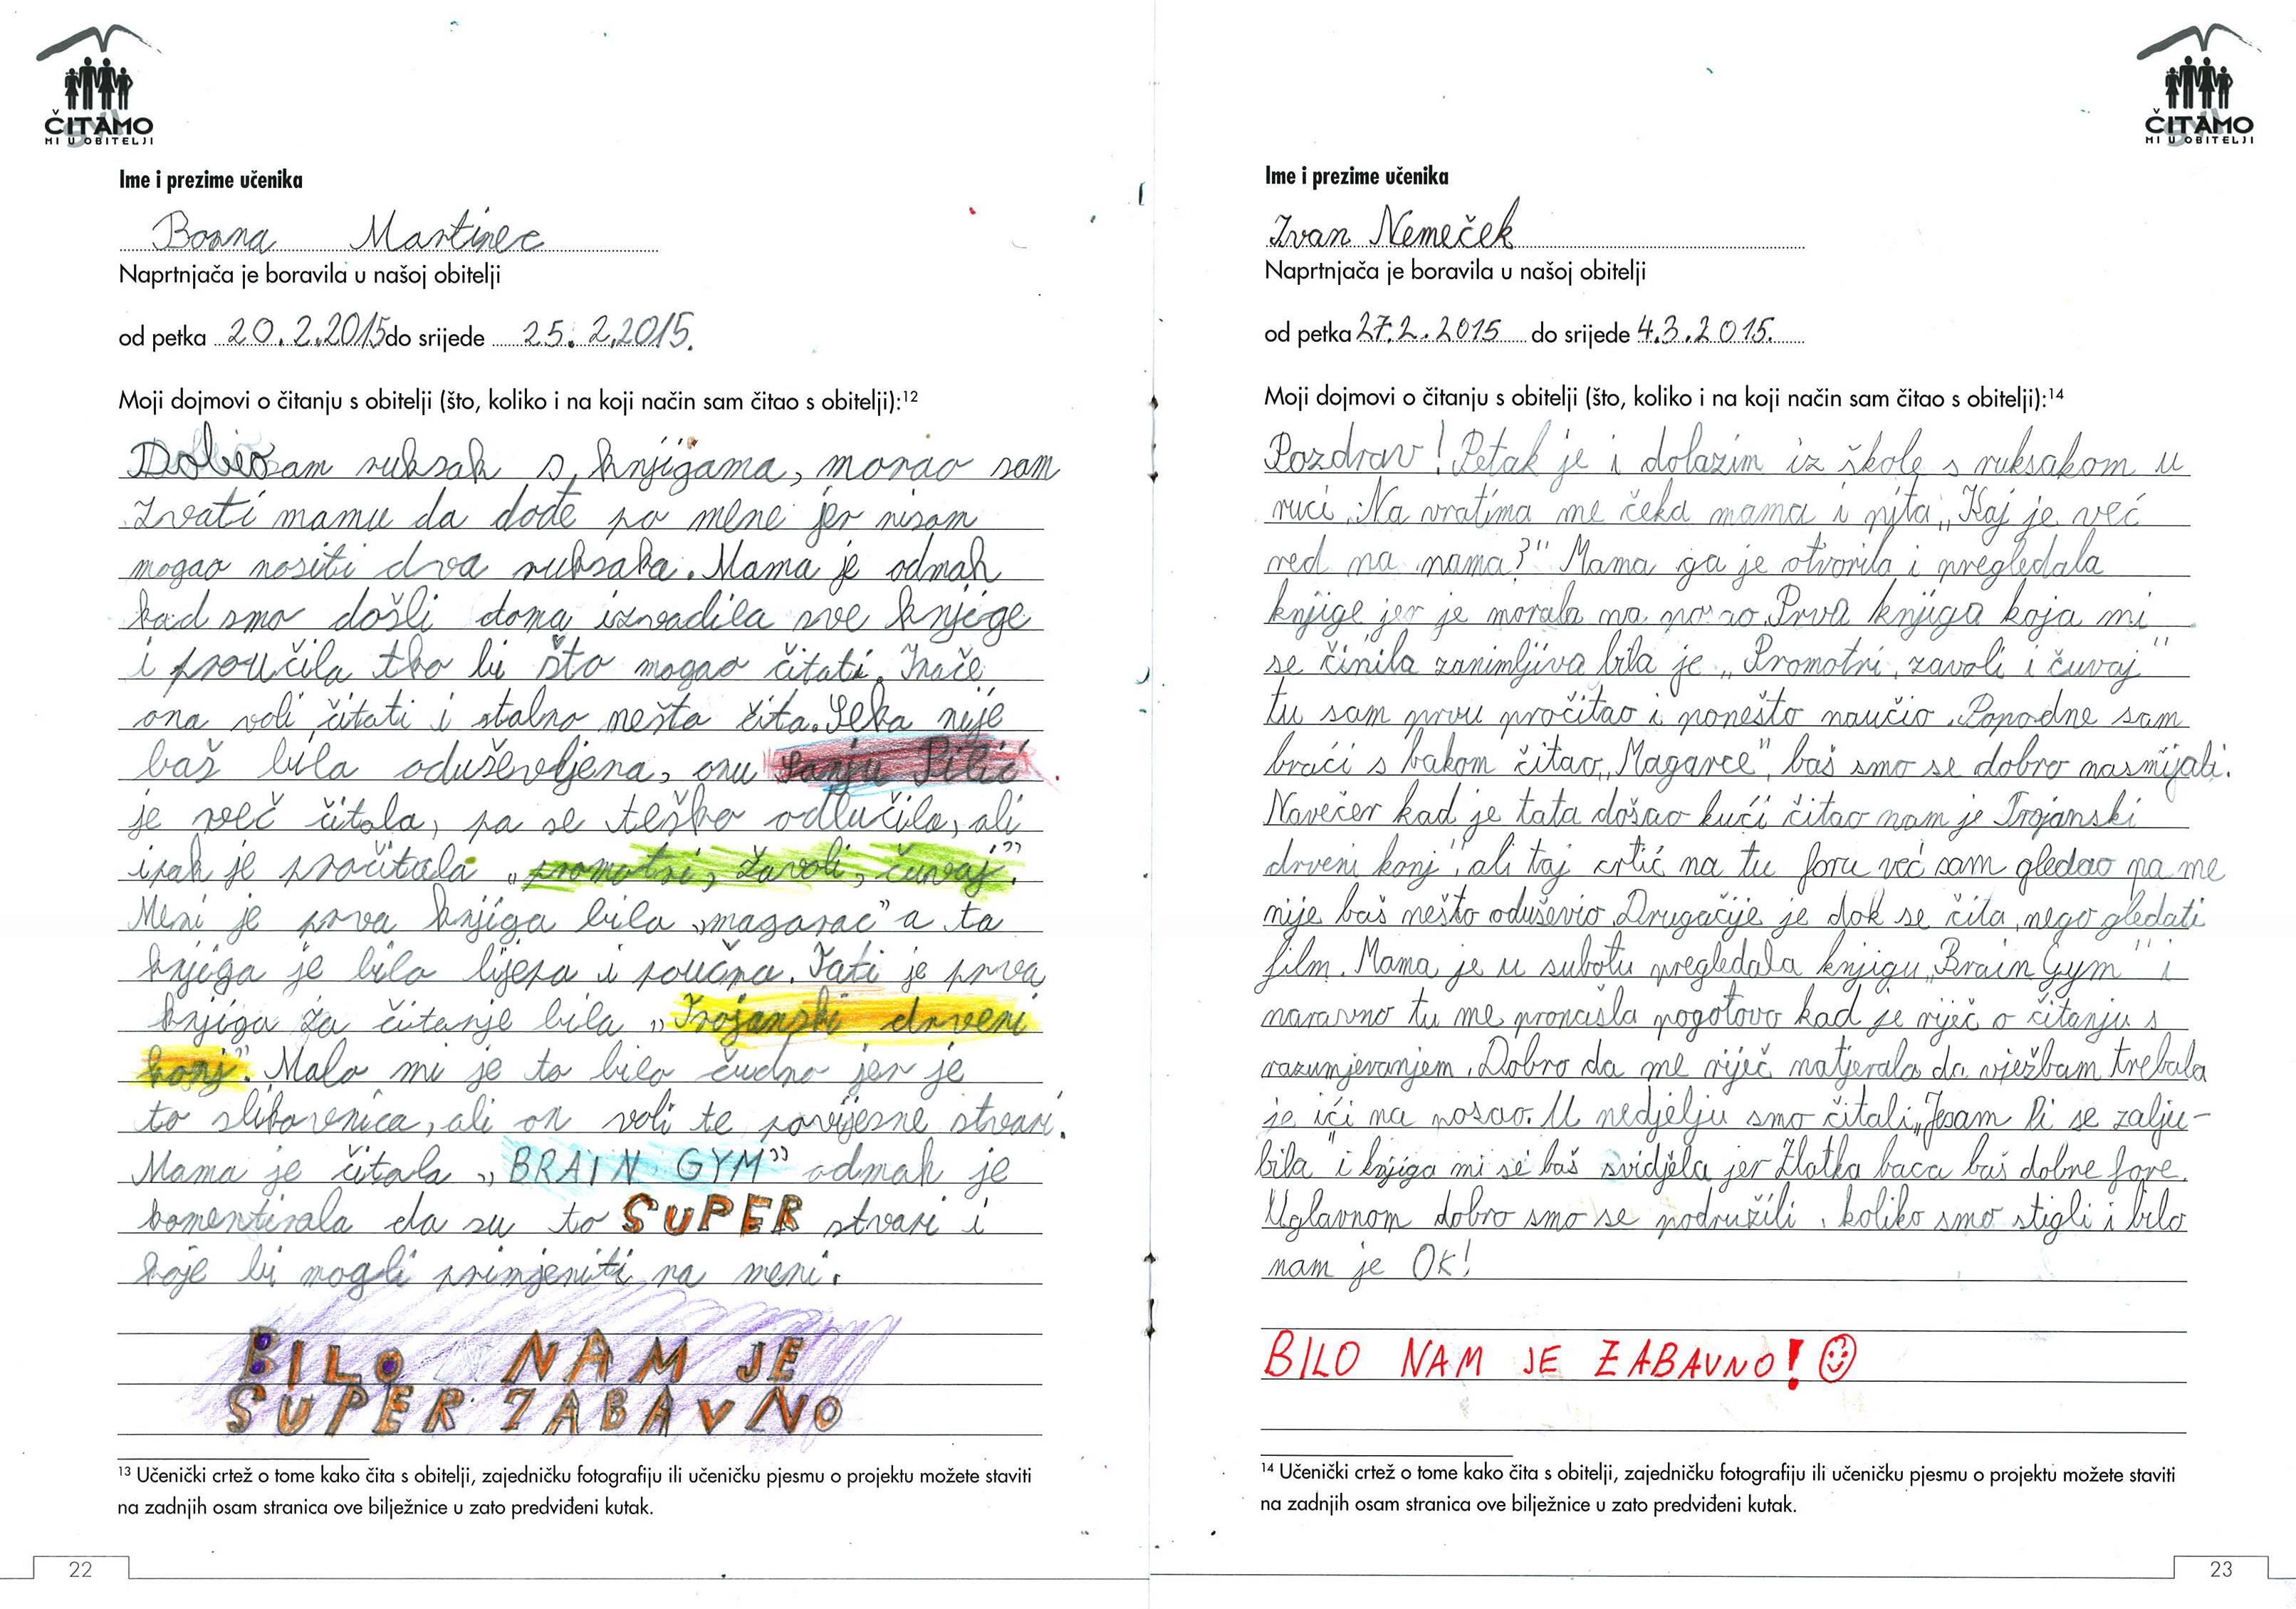 ČITAMO
MI U OBITELJI
Ime i prezime učenika
Borna Martinec
Naprtnjača je boravila u našoj obitelji
od petka 20.2.2015 do srijede 25.2.2015.
Moji dojmovi o čitanju s obitelji (što, koliko i na koji način sam čitao s obitelji):12
Dobio sam ruksak s knjigama, morao sam
zvati mamu da dođe po mene jer nisam
mogao nositi dva ruksaka. Mama je odmah
kad smo došli doma izvadila sve knjige
i proučila tko bi što mogao čitati. Inače
ona voli čitati i stalno nešto čita. Seka nije
baš bila oduševljena, onu Sanju Pilić
je več čitala, pa se teško odlučila, ali
ipak je pročitala „promotri, zavoli, čuvaj".
Meni je prva knjiga bila „magarac" a ta
knjiga je bila lijepa i poučna. Tati je prva
knjiga za čitanje bila „Trojanski drveni
konj". Malo mi je to bilo čudno jer je
to slikovnica, ali on voli te povijesne stvari.
Mama je čitala „BRAIN GYM" odmah je
komentirala da su to SUPER stvari i
koje bi mogli primjeniti na meni.
BILO NAM JE
SUPER ZABAVNO
13 Učenički crtež o tome kako čita s obitelji, zajedničku fotografiju ili učeničku pjesmu o projektu možete staviti
na zadnjih osam stranica ove bilježnice u zato predviđeni kutak.
22
ČITAMO
MI U OBITELJI
Ime i prezime učenika
Ivan Nemeček
Naprtnjača je boravila u našoj obitelji
od petka 27.2.2015 do srijede 4.3.2015.
Moji dojmovi o čitanju s obitelji (što, koliko i na koji način sam čitao s obitelji):14
Pozdrav! Petak je i dolazim iz škole s ruksakom u
ruci. Na vratima me čeka mama i pita „Kaj je već
red na nama?" Mama ga je otvorila i pregledala
knjige jer je morala na posao. Prva knjiga koja mi
se činila zanimljiva bila je „Promotri, zavoli i čuvaj"
tu sam prvu pročitao i ponešto naučio. Popodne sam
braći s bakom čitao „Magarce", baš smo se dobro nasmijali.
Navečer kad je tata došao kući čitao nam je Trojanski
drveni konj", ali taj crtić na tu foru već sam gledao pa me
nije baš nešto oduševio. Drugačije je dok se čita, nego gledati
film. Mama je u subotu pregledala knjigu „Brain Gym" i
naravno tu me pronašla pogotovo kad je riječ o čitanju s
razumjevanjem. Dobro da me riječ natjerala da vježbam trebala
je ići na posao. U nedjelju smo čitali „Jesam li se zalju-
bila" i knjiga mi se baš svidjela jer Zlatka baca baš dobne fore.
Uglavnom dobro smo se podružili, koliko smo stigli i bilo
nam je OK!
BILO NAM JE ZABAVNO!
14 Učenički crtež o tome kako čita s obitelji, zajedničku fotografiju ili učeničku pjesmu o projektu možete staviti
na zadnjih osam stranica ove bilježnice u zato predviđeni kutak.
23